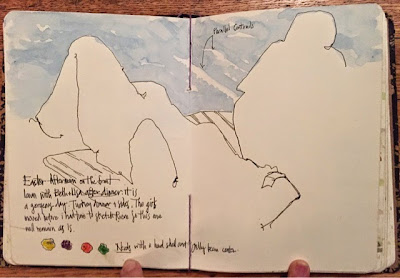 Parallel Contrails
Easter Afternoon on the front
lawn with Beth + Lisa after dinner. It is
a gorgeous day. Turkey dinner + sides. The girls
moved before I had time to sketch them so this one
will remain as is.
Nuts with a hard shell and